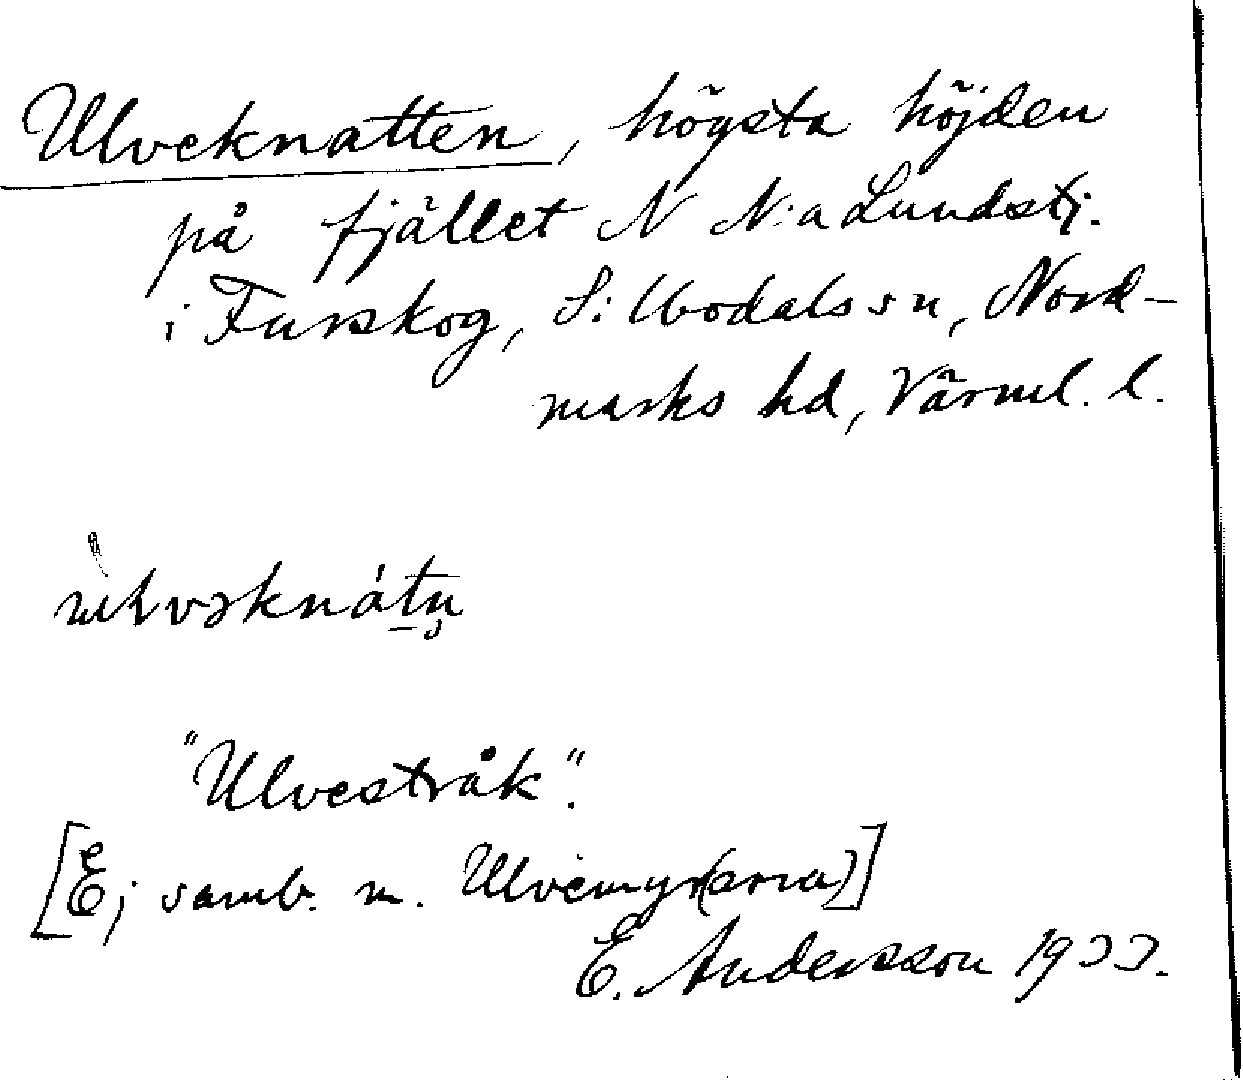 Ulveknatten, högsta höjden
på fjället N N:a Lundstj.
i Furskog, S: bodals sn, Nord-
marks hd, Värml. l.
"Ulvestråk".
[Ej samb. m. Ulvemyr(arna)]
E. Andersson 1933.